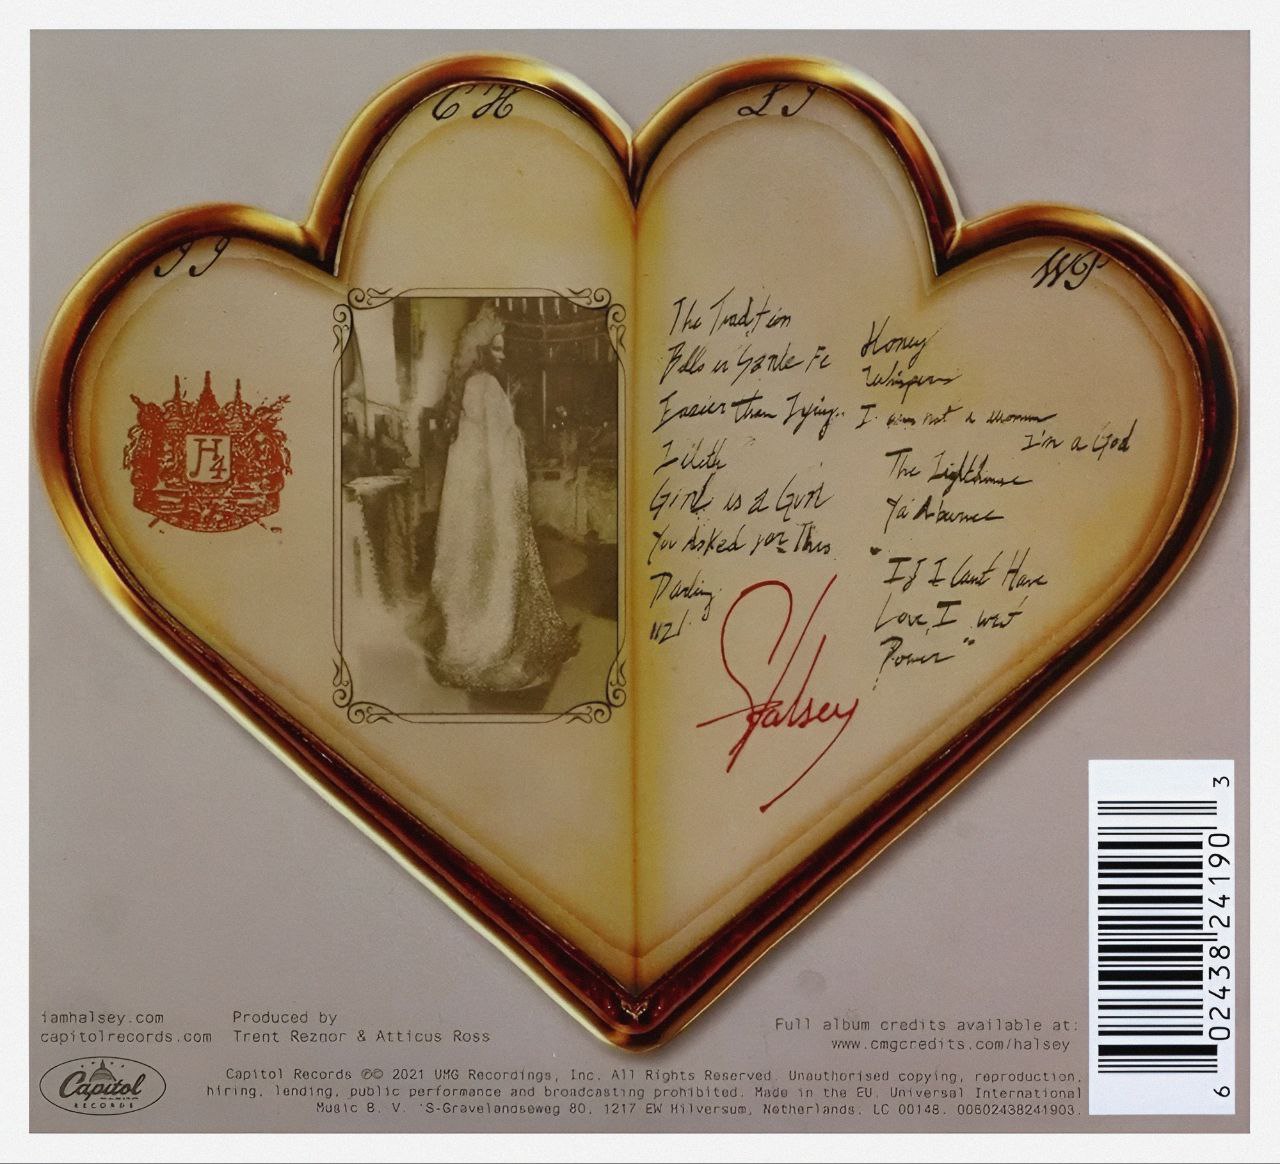 CH
LJ
JJ
WP
H4
The Tradition
Bells in Sante Fe
Easier than Lying..
Lilith
Girl is a Gun
You Asked for This
Darling
1121
Honey
Whispers
I am not a woman
I'm a God
The Lighthouse
Ya'Aburnee
"If I Can't Have
Love, I want
Power"
Halsey
iamhalsey.com
capitolrecords.com
Produced by
Trent Reznor & Atticus Ross
Full album credits available at:
www.cmgcredits.com/halsey
Capitol
RECORDS
Capitol Records ℗© 2021 UMG Recordings, Inc. All Rights Reserved. Unauthorised copying, reproduction,
hiring, lending, public performance and broadcasting prohibited. Made in the EU. Universal International
Music B. V. 'S-Gravelandseweg 80, 1217 EW Hilversum, Netherlands. LC 00148. 00602438241903.
6 02438 24190 3